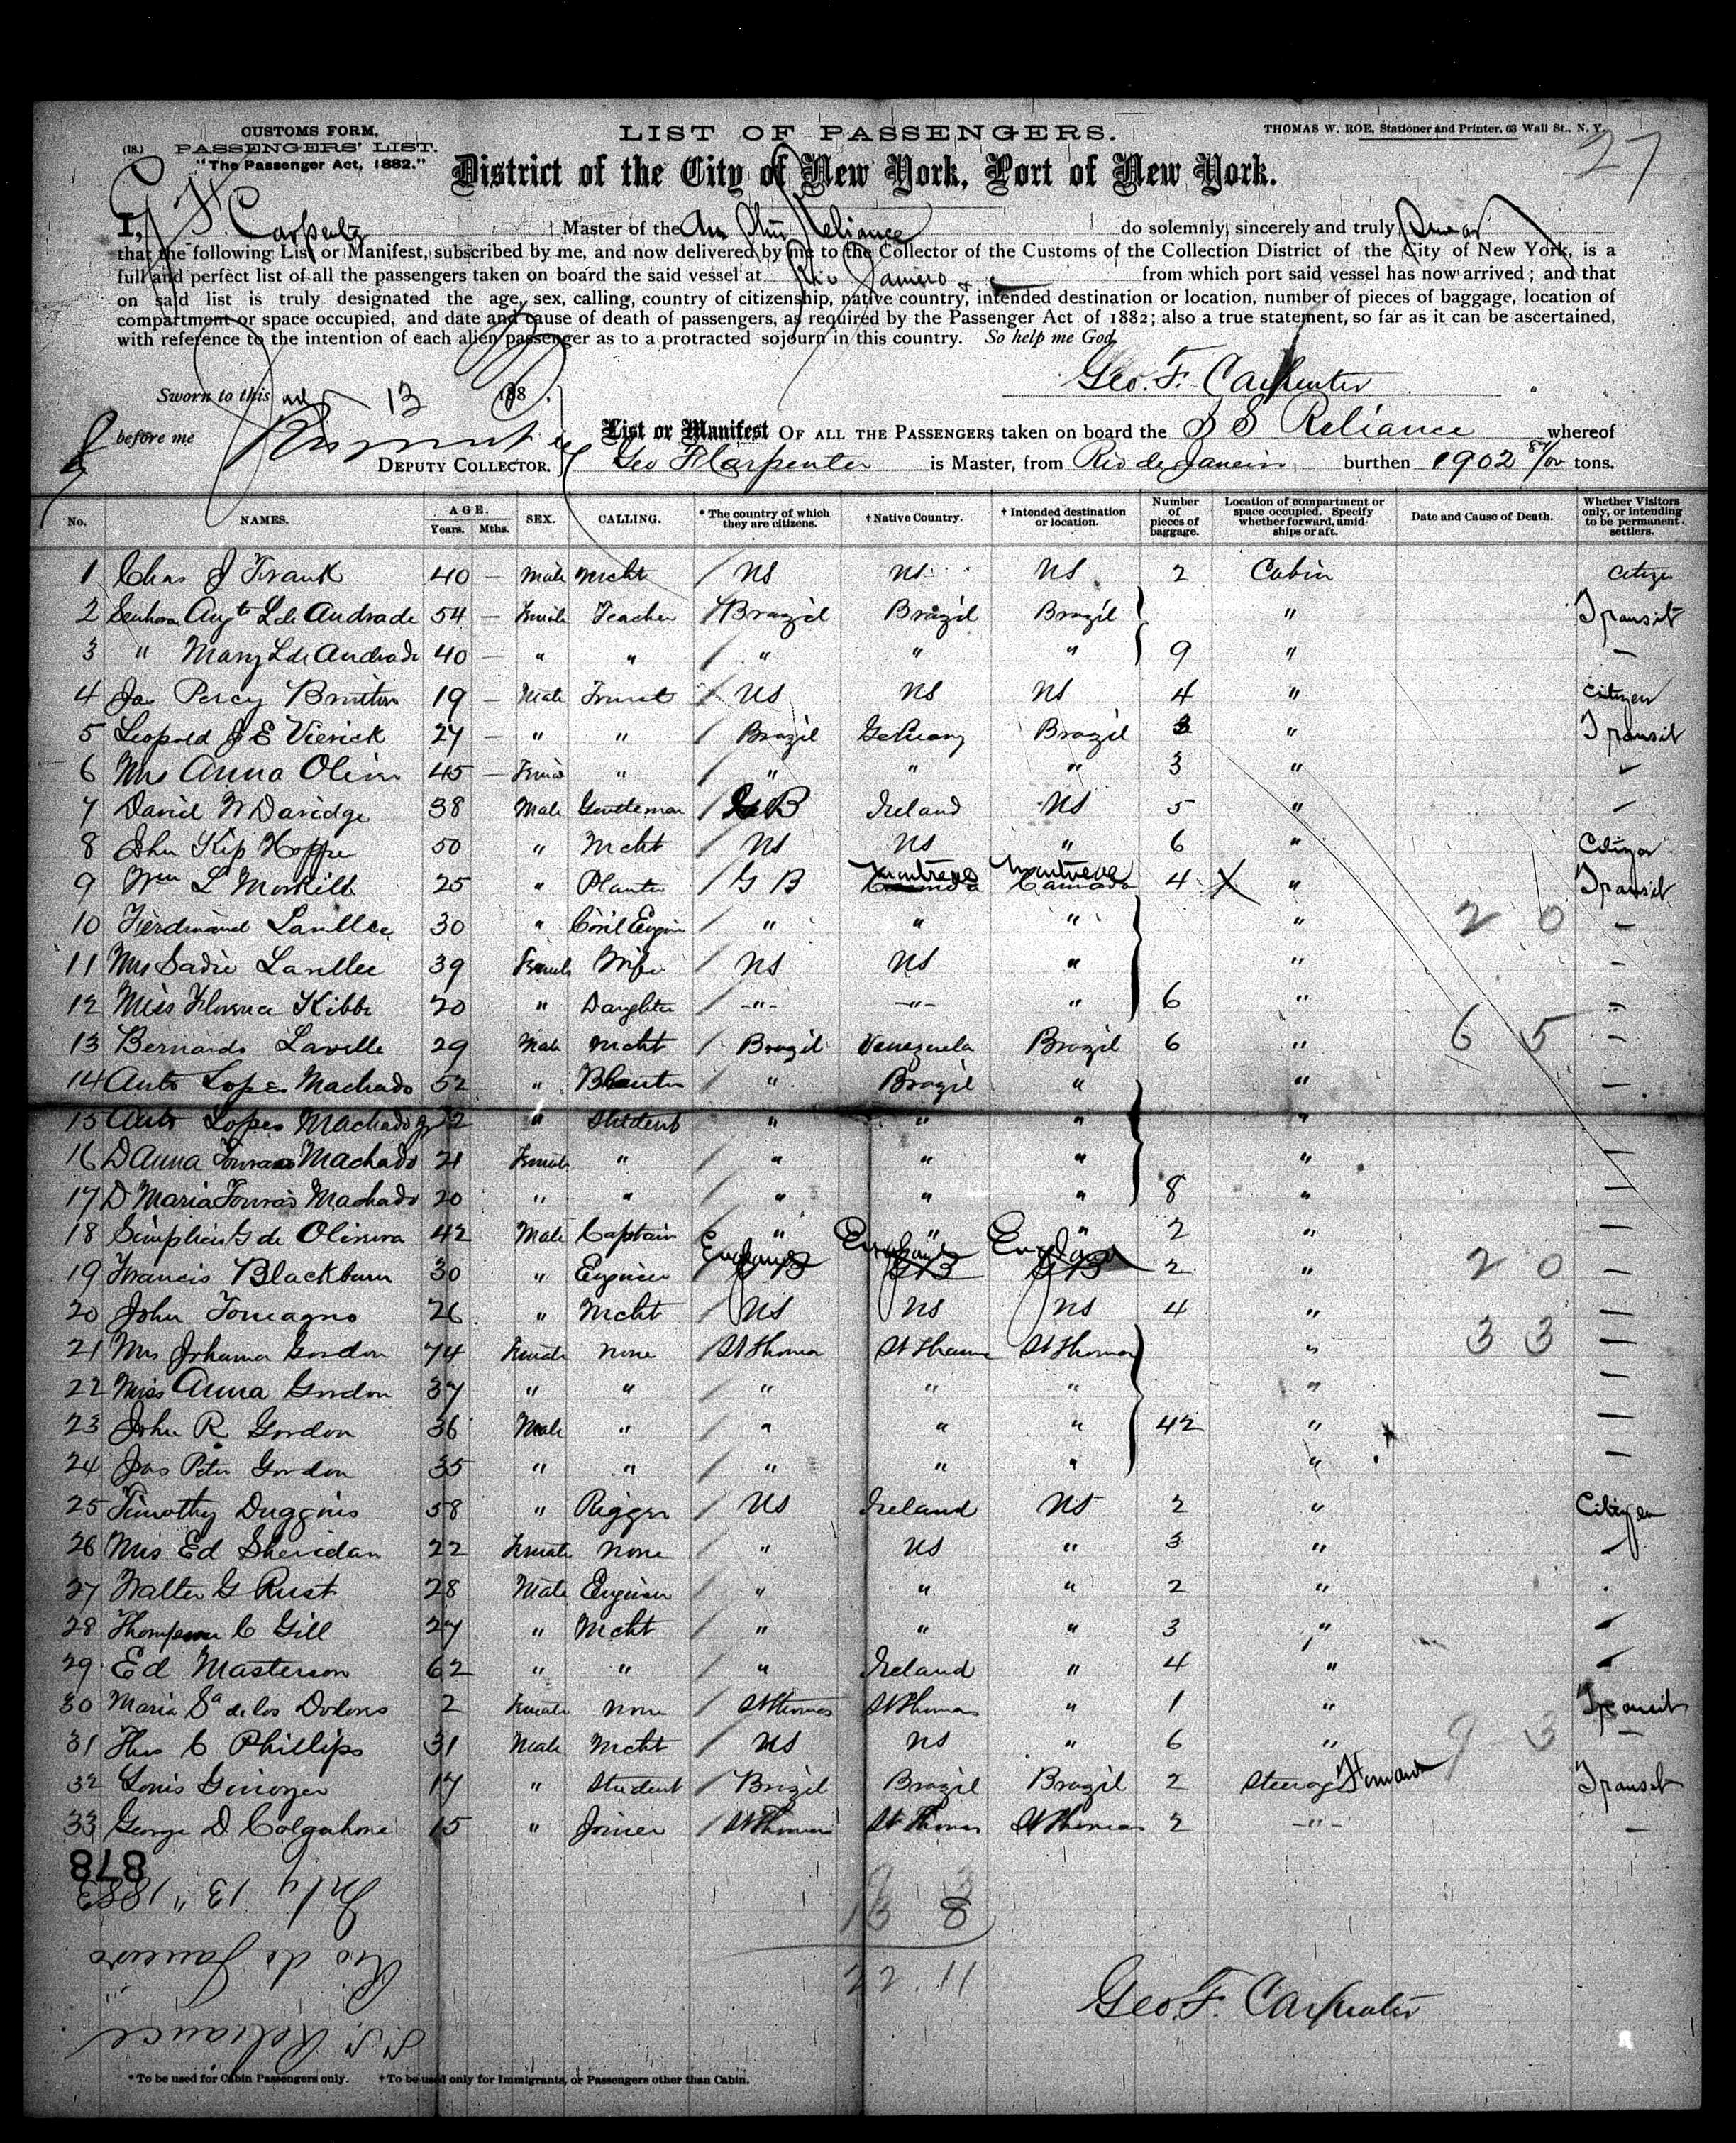 27
CUSTOMS FORM,
(18.) PASSENGERS' LIST.
"The Passenger Act, 1882."
LIST OF PASSENGERS.
THOMAS W. ROE, Stationer and Printer, 63 Wall St., N. Y.
District of the City of New York, Port of New York.
I, G F Carpenter Master of the Am Reliance do solemnly, sincerely and truly Swear
that the following List or Manifest, subscribed by me, and now delivered by me to the Collector of the Customs of the Collection District of the City of New York, is a
full and perfect list of all the passengers taken on board the said vessel at Rio Janiero from which port said vessel has now arrived; and that
on said list is truly designated the age, sex, calling, country of citizenship, native country, intended destination or location, number of pieces of baggage, location of
compartment or space occupied, and date and cause of death of passengers, as required by the Passenger Act of 1882; also a true statement, so far as it can be ascertained,
with reference to the intention of each alien passenger as to a protracted sojourn in this country. So help me God.
Geo. F. Carpenter
Sworn to this 13 188
before me
DEPUTY COLLECTOR.
List or Manifest OF ALL THE PASSENGERS taken on board the S S Reliance whereof
Geo F Carpenter is Master, from Rio de Janeiro burthen 1902 tons.
No. NAMES. AGE. Years. Mths. SEX. CALLING. * The country of which they are citizens. † Native Country. † Intended destination or location. Number of pieces of baggage. Location of compartment or space occupied. Specify whether forward, amidships or aft. Date and Cause of Death. Whether Visitors only, or intending to be permanent settlers.
1 Chas J Frank 40 — Male Mcht US US US 2 Cabin Citizen
2 Senhora Augta L de Andrade 54 — Female Teacher Brazil Brazil Brazil " Transit
3 " Mary L de Andrade 40 — " " " " " 9 " —
4 Jas Percy 19 — Male Tourist US US US 4 " Citizen
5 Leopold J E Vierick 27 — " " Brazil Germany Brazil 3 " Transit
6 Mrs Anna 45 — Female " " " " 3 "
7 David W Davidge 38 Male Gentleman GB Ireland US 5 "
8 John Kip Hoppe 50 " Mcht US US " 6 " Citizen
9 Wm L 25 " Planter G B Montreal Canada Montreal Canada 4 X " Transit
10 Ferdinand Lavllee 30 " Civil Engin " " " " — 2 0
11 Mrs Sadie Lavllee 39 Female Wife US US " " —
12 Miss Florence Kibbe 20 " Daughter " " " 6 "
13 Bernardo Laville 29 Male Mcht Brazil Venezuela Brazil 6 " — 6 5
14 Anto Lopes Machado 52 " Planter " Brazil " " —
15 Anto Lopes Machado Jr 22 " Student " " " "
16 D Anna Machado 21 Female " " " " " —
17 D Maria Machado 20 " " " " " 8 " —
18 Simplicio G de Oliveira 42 Male Captain " " " 2 " —
19 Francis Blackburn 30 " Engineer England GB England GB England GB 2 " — 2 0
20 John 26 " Mcht US US US 4 " —
21 Mrs Johanna Gordon 74 Female None St Thomas St Thomas St Thomas " — 3 3
22 Miss Anna Gordon 37 " " " " " " —
23 John R Gordon 36 Male " " " " 42 " —
24 Jas Peter Gordon 35 " " " " " " —
25 Timothy Duggins 58 " Rigger US Ireland US 2 " Citizen
26 Mrs Ed Sheridan 22 Female None " US " 3 "
27 Walter G Rust 28 Male Engineer " " " 2 "
28 Thompson C Gill 27 " Mcht " " " 3 "
29 Ed Masterson 62 " " " Ireland " 4 "
30 Maria Sa de los Dolores 2 Female None St Thomas St Thomas " 1 " Transit
31 Thos C Phillips 31 Male Mcht US US " 6 " — 9 3
32 Louis 17 " Student Brazil Brazil Brazil 2 Steerage Forward Transit
33 George D 15 " Joiner St Thomas St Thomas St Thomas 2 " —
878
July 13" 1883
Rio de Janeiro
S.S. Reliance
9 3
13 8
22 11
Geo. F. Carpenter
* To be used for Cabin Passengers only. † To be used only for Immigrants, or Passengers other than Cabin.